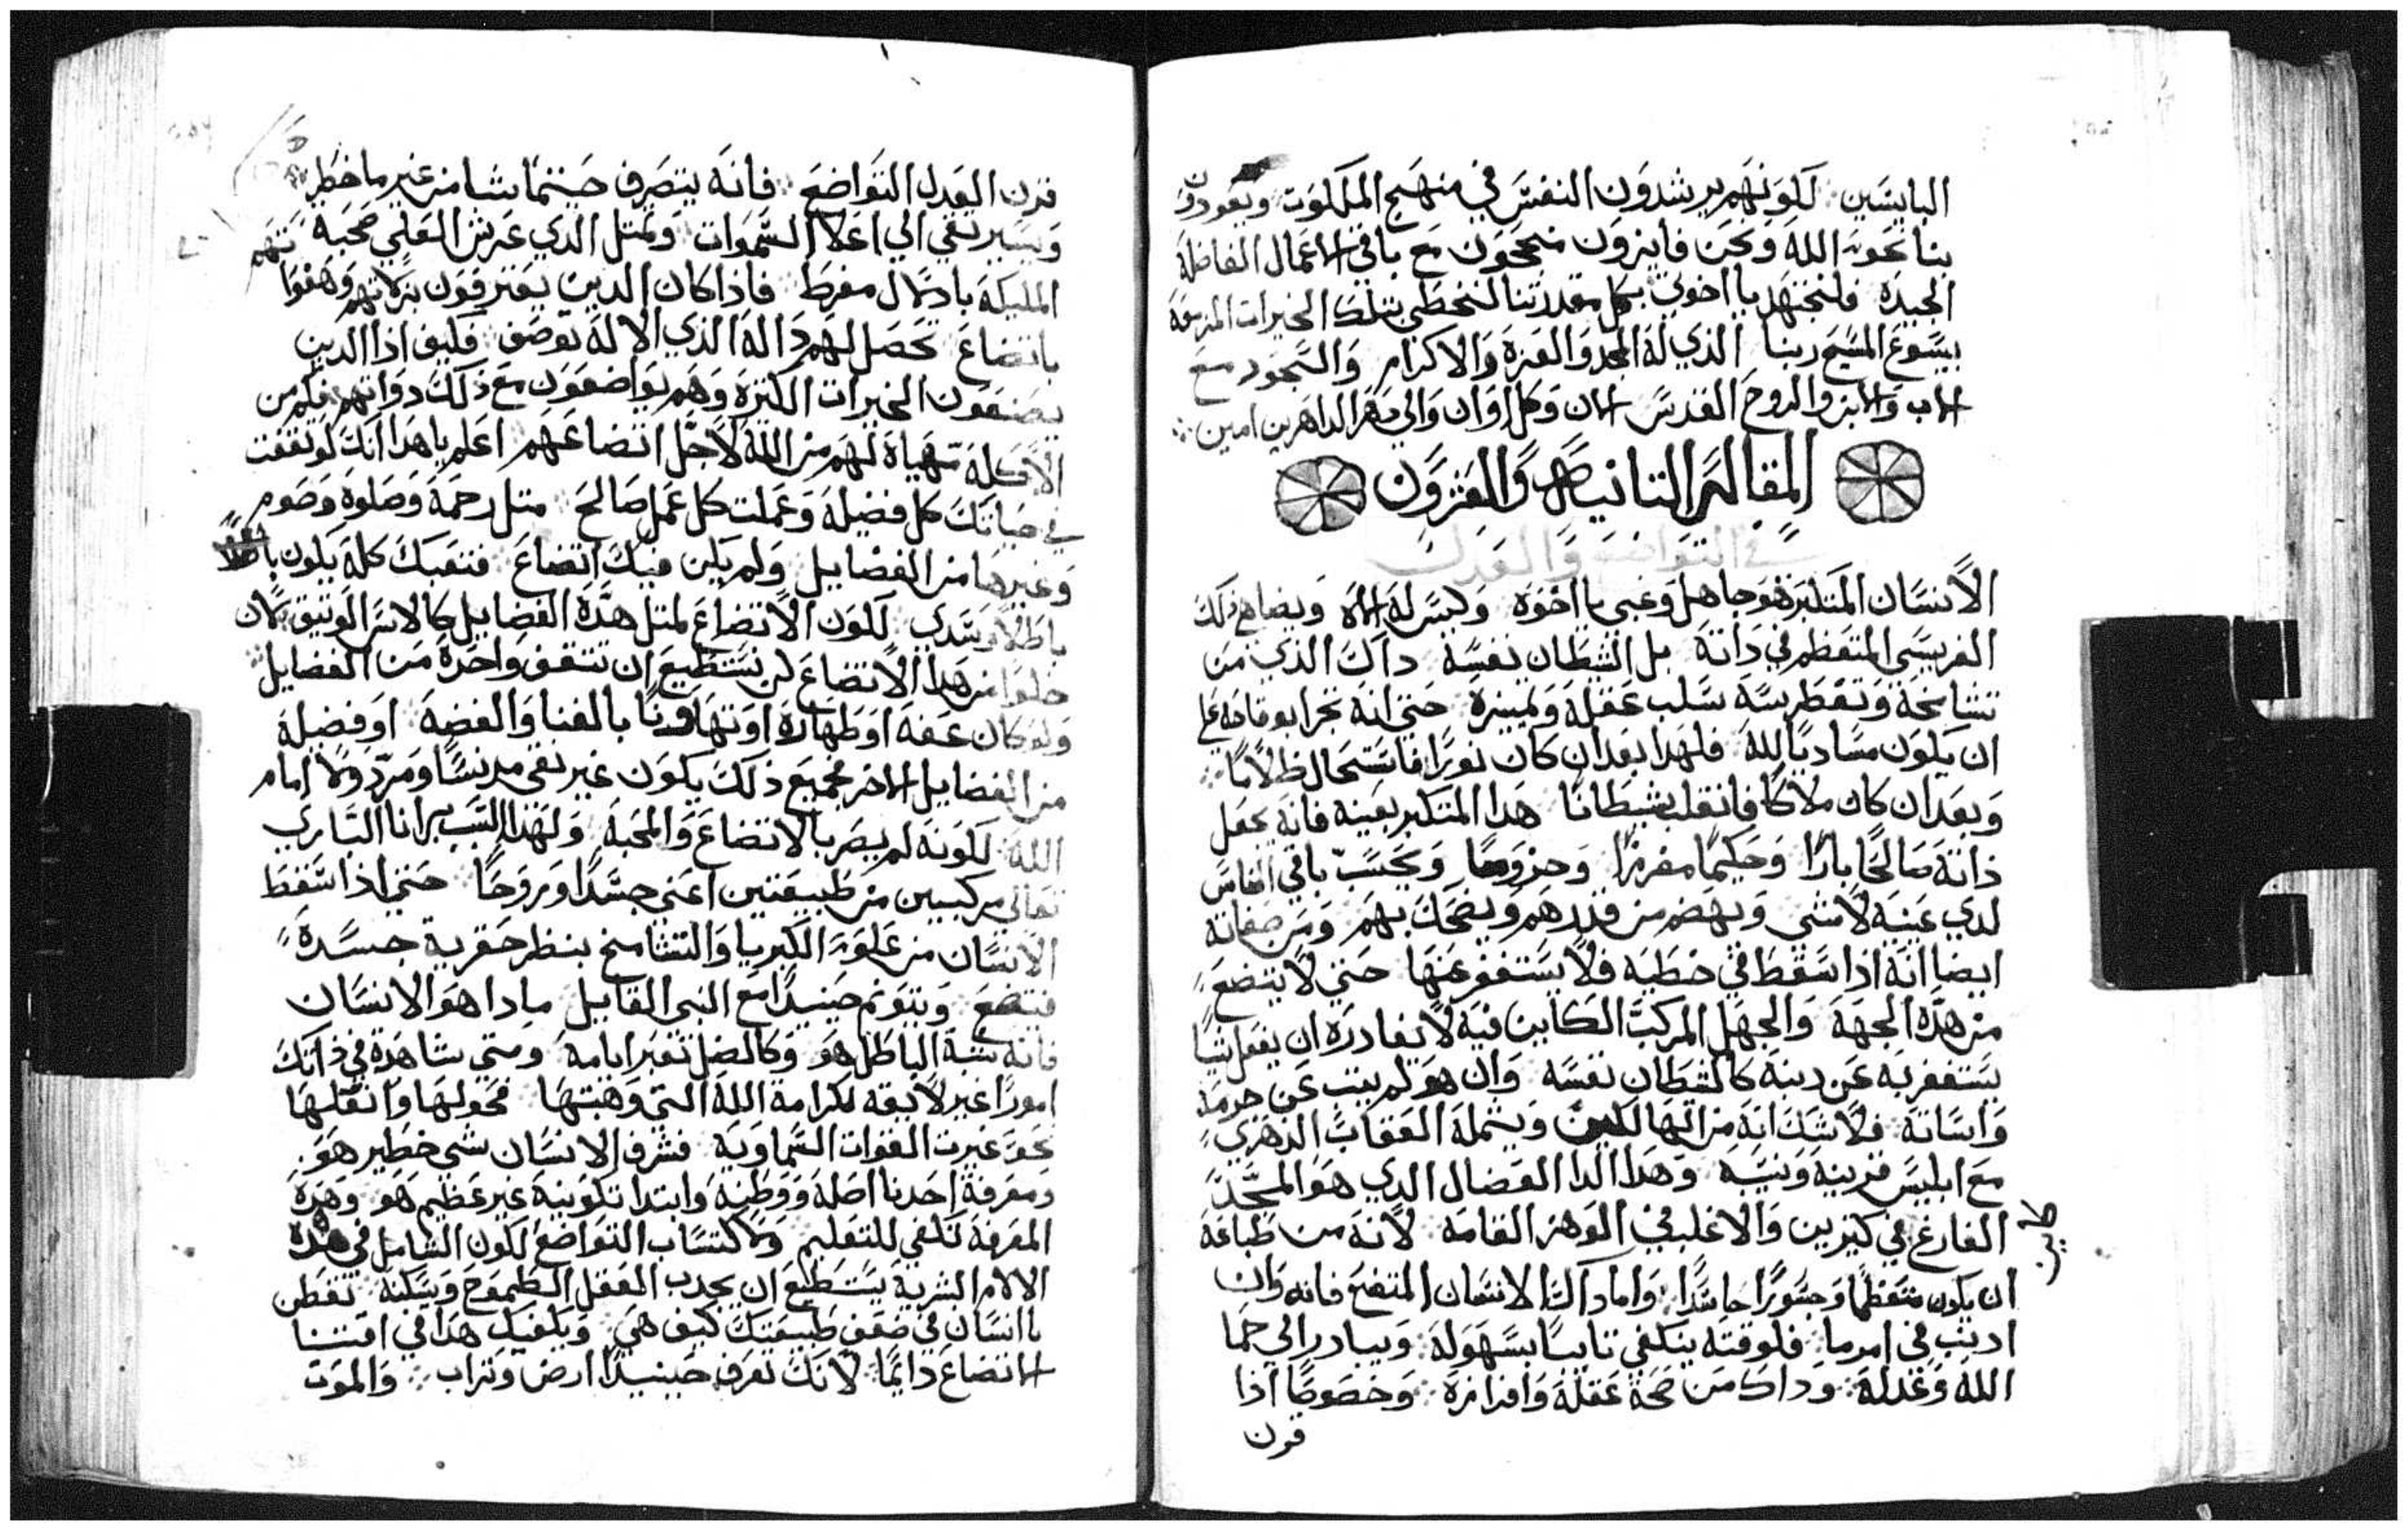 البايسين لكونهم يرشدون النفس في منهج الملكوت ويعودون
بنا نحو الله ونحن فايزون منجحون مع باقي الاعمال الفاضلة
الجيدة فلنجتهد يا اخوتي بكل مقدرتنا لنحظي بتلك الخيرات المزمعة
بيسوع المسيح ربنا الذي له المجد والعزة والاكرام والسجود مع
الاب والابن والروح القدس الان وكل اوان والي دهر الداهرين امين
المقالة التانية والعشرون
في التواضع والعدل
الانسان المتكبر هو جاهل وغبي يا اخوة وليس له اله ويضاهي ذلك
الفريسي المتعظم في داته بل الشيطان نفسه داك الذي من
تشامخه وتغطرسه سلب عقله وتميزه حتي انه تجرا بوقاحة علي
ان يكون مساويا لله فلهدا بعد ان كان نورا فاستحال ظلاما
وبعد ان كان ملاكا فانقلب شيطانا هدا المتكبر بعينه فانه يجعل
ذاته صالحا بارا وحكيما مفرزا وحزوما ويحسب باقي الناس
لدي عينيه لا شي ويهضم من قدرهم ويضحك بهم ومن صفاته
ايضا انه اذا سقط في خطيه فلا يستغفر عنها حتي لا يتضع
من هذه الجهة والجهل المركب الكاين فيه لا يغادره ان يفعل شيا
يستغفر به عن دينه كالشيطان نفسه وان هو لم يتب عن جرمه
واساته فلا شك انه من الهالكين ويشمله العقاب الدهري
مع ابليس قرينه ونسيبه وهدا الدا العضال الدي هو المجد
الفارغ كاين في كثيرين والاغلب في الوهر القامه لانه من طباعه
ان يكون متعظما وجسورا حاسدا واما داك الانسان المتضع فانه وان
ادنب في امر ما فلوقته يتلقي تايبا بسهولة ويبادر الي حما
الله وعدله وداك من صحة عقله وافرازه وخصوصا اذا
قرن
قرن العدل التواضع فانه يتصرف حيتما يشا من غير ما خطر
ويسير يقي الي اعلا السموات ويمتل الدي عرش العلي صحبة
المليكة بادلال مفرط فاذا كان الدين يعترفون بزلاتهم وهفواتهم
باتضاع تحصل لهم دالة الذي لا له توصف فكيف اذا الدين
يصنعون الخيرات الكتيرة وهم يواضعون مع ذلك دواتهم فكم من
الاكلة مهياة لهم من الله لاجل اتضاعهم اعلم يا هدا انك لو تقفت
في حياتك كل فضيلة وعملت كل عمل صالح متل رحمة وصلوة وصوم
وغيرها من الفضايل ولم يكن فيك اتضاع فتعبك كله يكون باطلا
باطلا وسدي لكون الاتضاع لمتل هذه الفضايل كالاس الوتيق لان
خلوا من هدا الاتضاع لن يستطيع ان تتقف واحدة من الفضايل
ولو كان عفة او طهارة او تهاونا بالغنا والفضة او فضيلة
من الفضايل الاخر فجميع ذلك يكون غير نقي مدنسا ومردولا امام
الله لكونه لم يصر بالاتضاع والمحبة ولهذا السبب برانا الباري
تعالي مركبين من طبيعتين اعني جسدا وروحا حتي اذا سقط
الانسان من علو الكبريا والتشامخ بنظر حقرية جسده
فيتضع ويترنم حينيدا مع النبي القايل مادا هو الانسان
فانه شبه الباطل هو وكالضل تعبر ايامه ومتي شاهدة في ذاتك
امورا غير لايقة لكرامة الله التي وهبتها فحولها وانقلها
نحو غيرت القوات السماوية فشرف الانسان شي خطير هو
ومعرفة احدنا اصله ووطنه وابتدا تكوينه غير عظيم هو وهذه
المعرفة تكفي للتعليم ولاكتساب التواضع لكون الشامل في هذه
الالام البشرية يستطيع ان يجدب العقل الطموح ويسكنه تفطن
يا انسان في ضعف طبيعتك كيف هي ويكفيك هدا في اقتنا
الاتضاع دايما لانك تعرف حينيدا ارض وتراب والموت